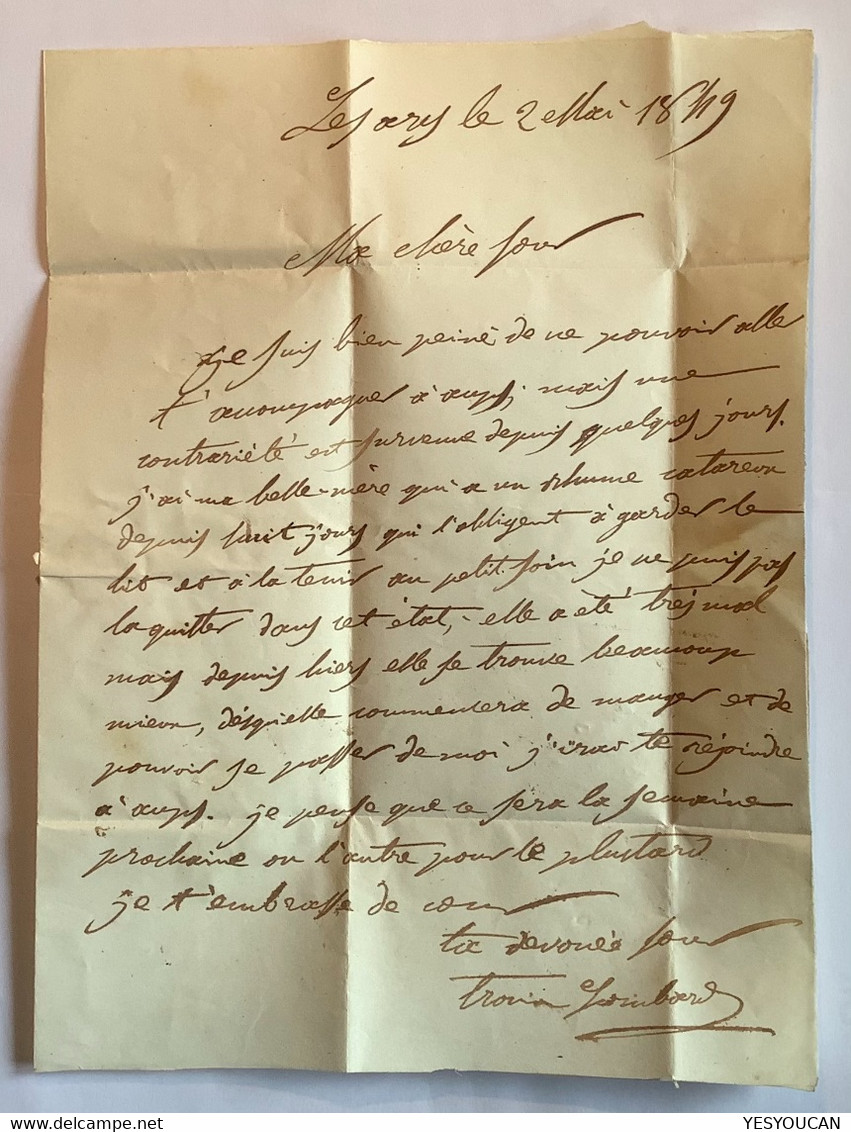 Les arcs le 2 Mai 1849
Ma chère sœur
Je suis bien peiné de ne pouvoir aller
t'acompagner à aups, mais une
contrariété est survenue depuis quelques jours.
j'ai ma belle-mère qui a un rhume catareux
depuis huit jours qui l'obligent à garder le
lit et à la tenir au petit soin je ne puis pas
la quitter dans cet état, elle a été très mal
mais depuis hiers elle se trouve beaucoup
mieux, désquelle commencera de manger et de
pouvoir se passer de moi j'irai te rejoindre
à aups. je pense que ce sera la semaine
prochaine ou l'autre pour le plustard
je t'embrasse de cœur
ta dévouée sœur
Lombard
YESYOUCAN